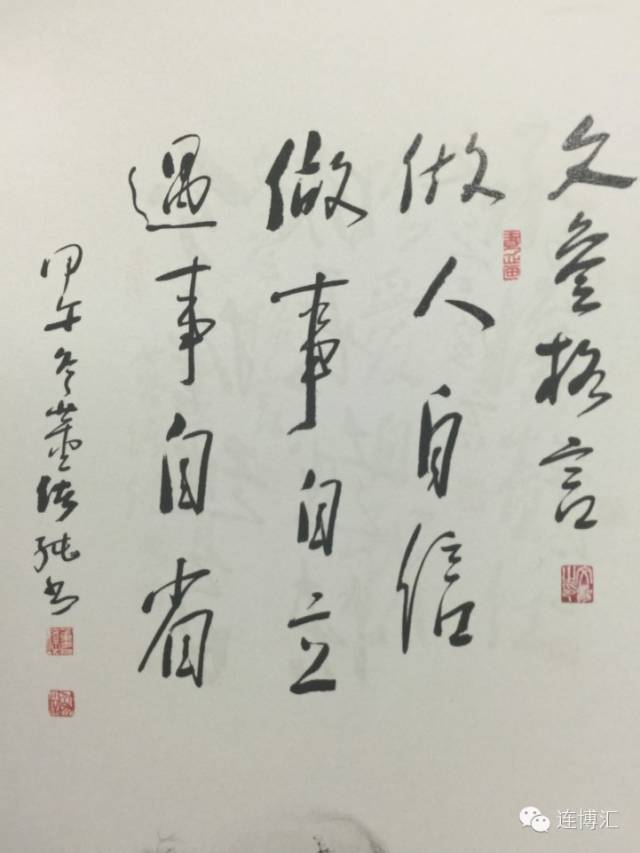 文叁格言
做人自信
做事自立
遇事自省
甲午冬董依纯书
连博汇